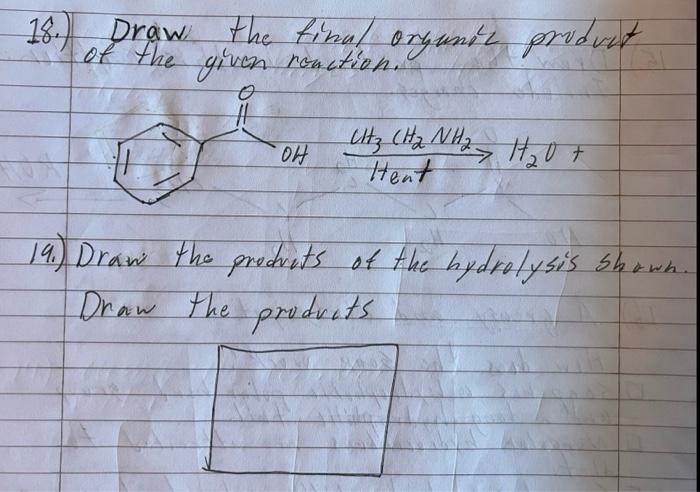 18.) Draw the final organic product
of the given reaction.
O
OH
CH3 CH2 NH2
Heat
H2O +
19.) Draw the products of the hydrolysis shown.
Draw the products